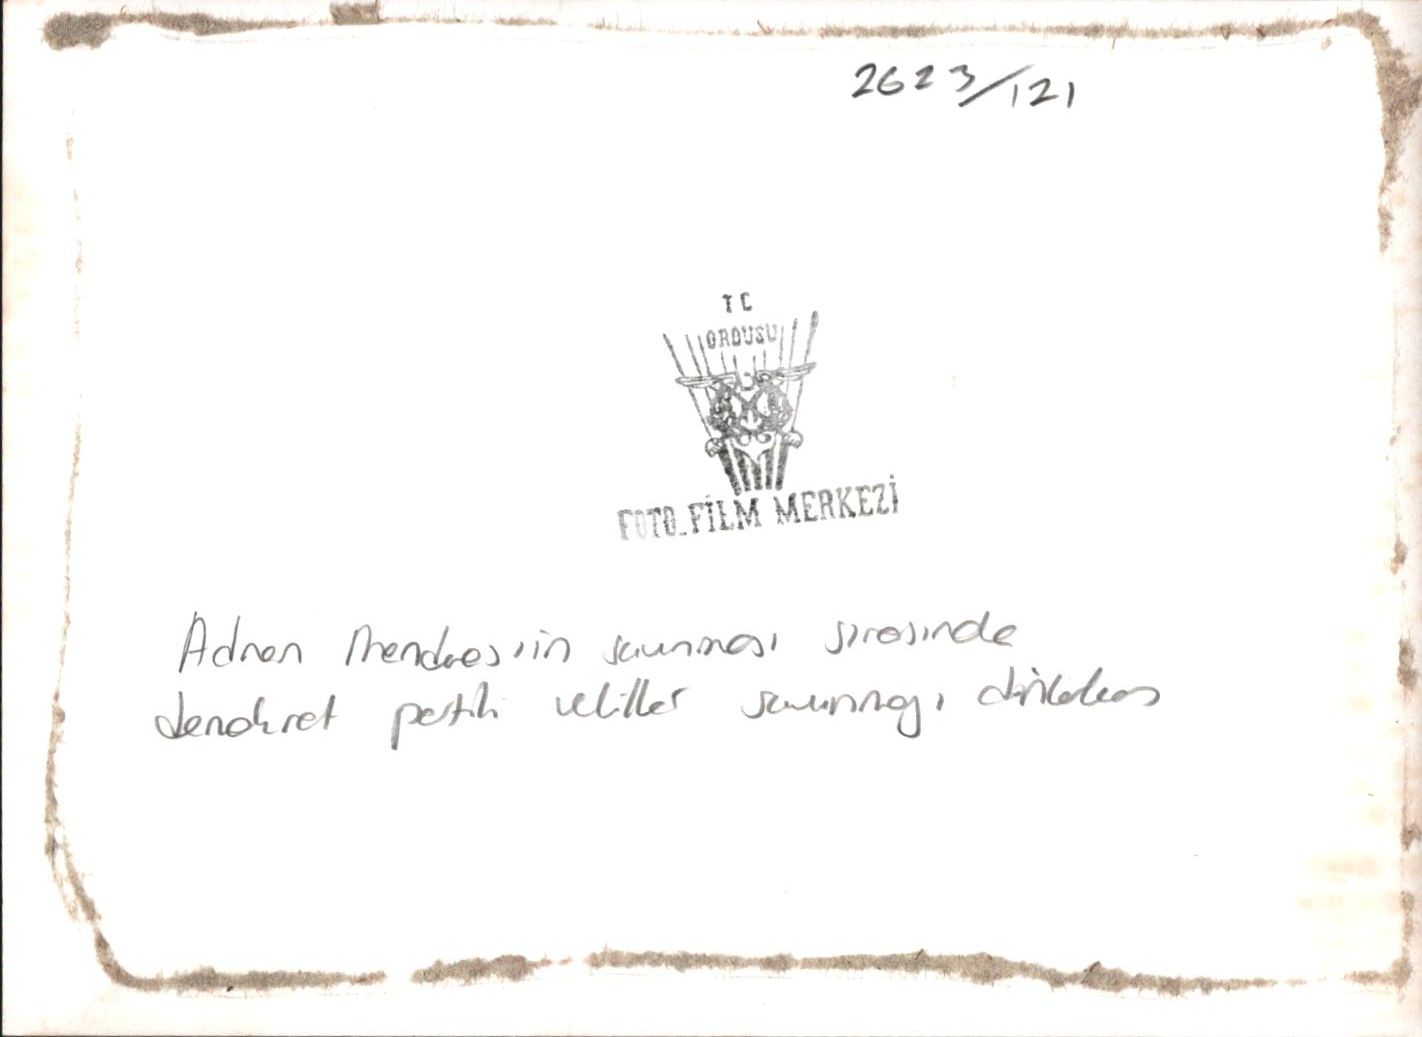 2623/121
TC
ORDUSU
FOTO-FİLM MERKEZİ
Adnan Menderes'in savunması sırasında
demokrat partili vekiller savunmayı dinlerken